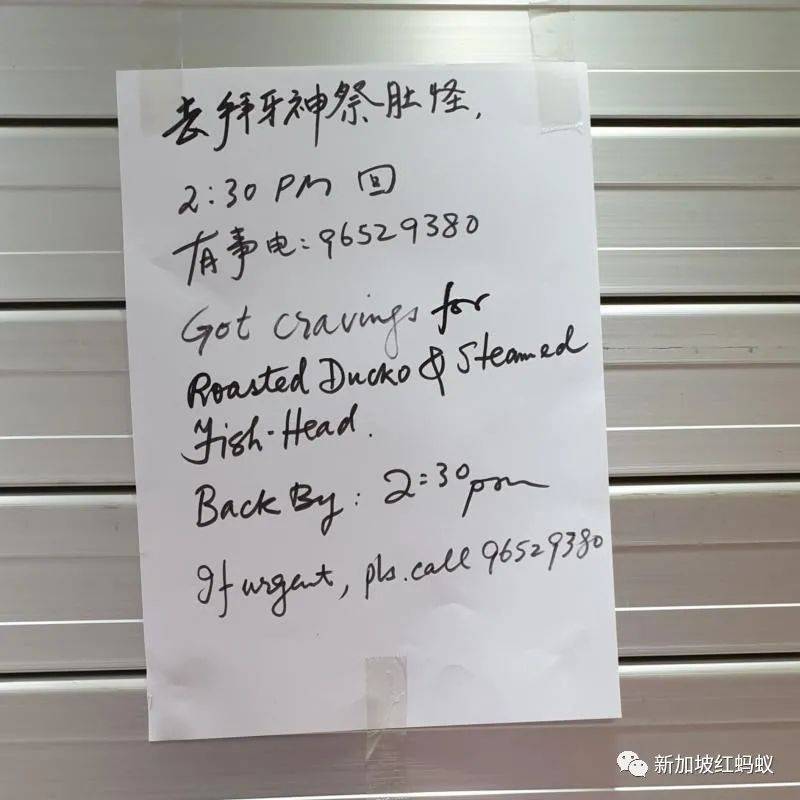 去拜牙神祭肚怪,
2:30 PM 回
有事电:96529380
Got cravings for
Roasted Ducko & Steamed
Fish-Head.
Back By: 2:30pm
If urgent, pls. call 96529380
新加坡红蚂蚁